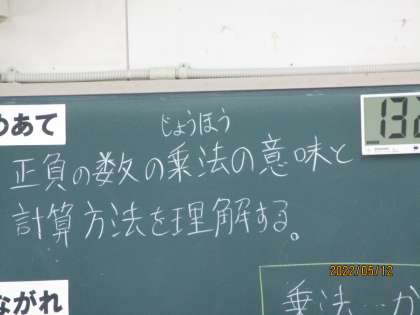 めあて
じょうほう
正負の数の乗法の意味と
計算方法を理解する。
ながれ
乗法…か
2022/05/12